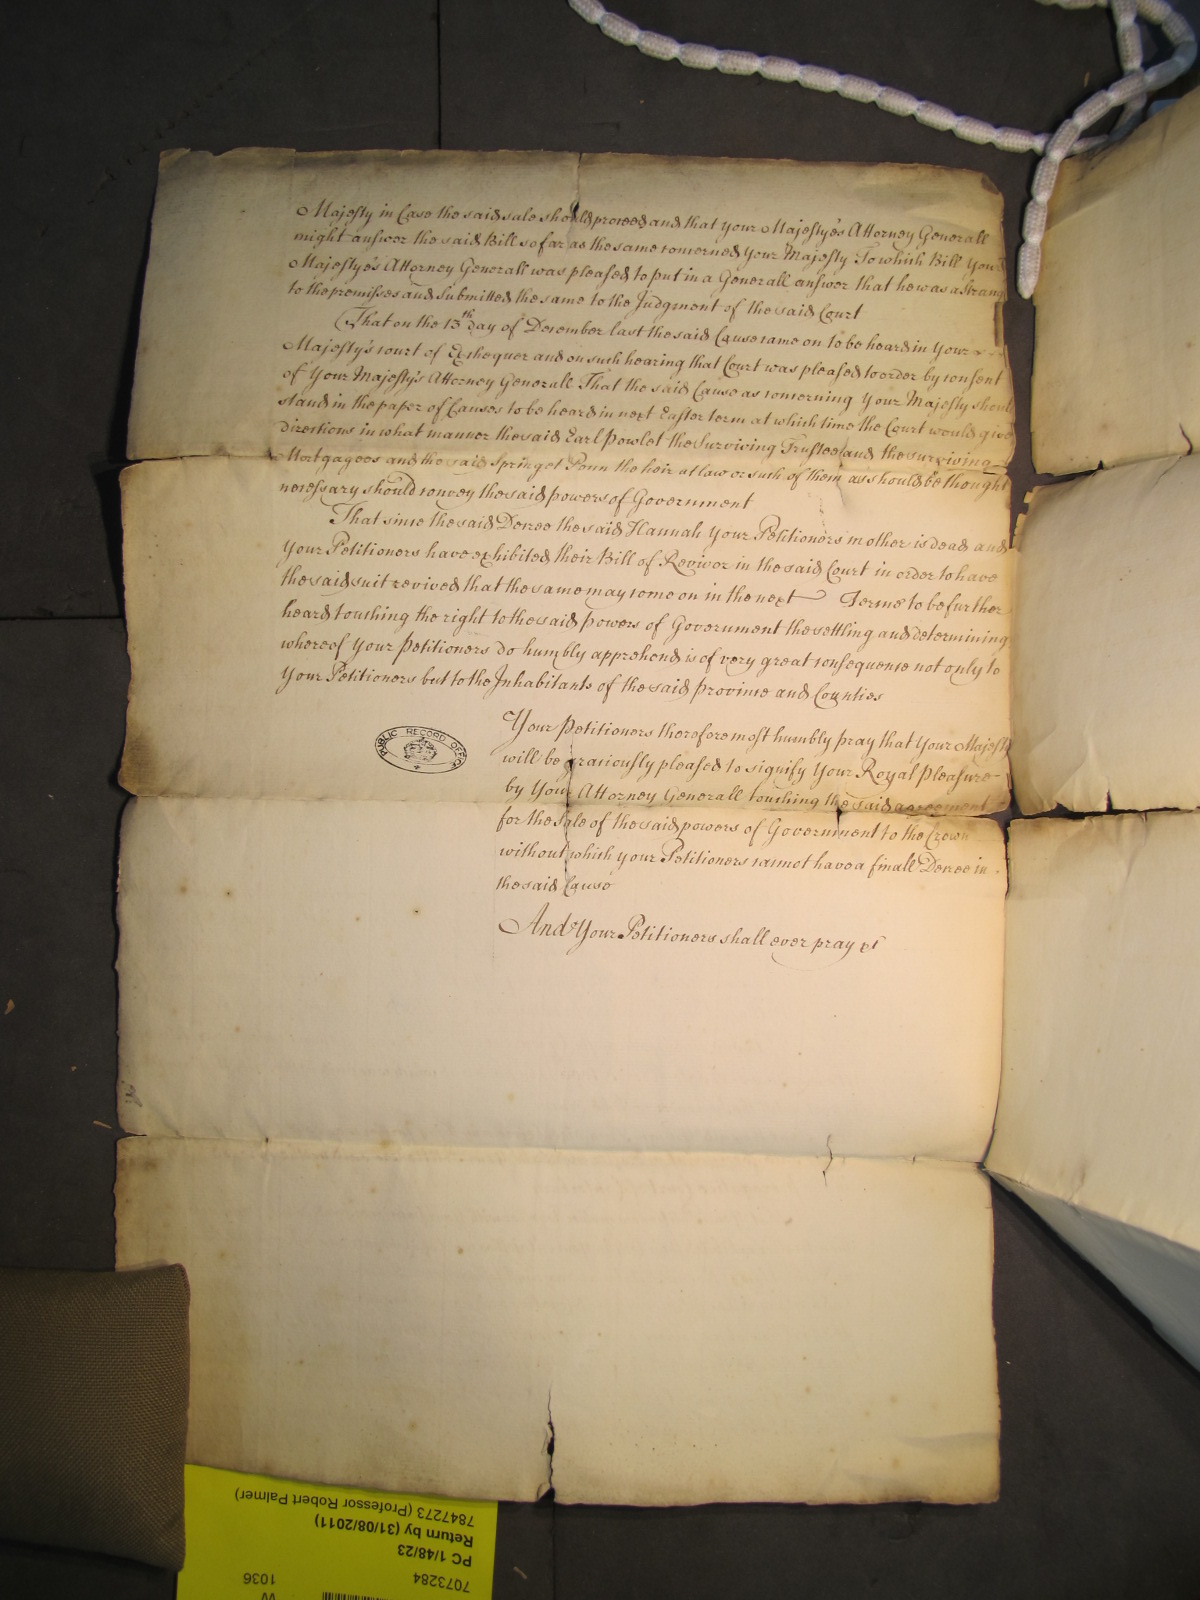 Majesty in Case the said sale should proceed and that your Majestye's Attorney Generall
might answer the said Bill so far as the same concerned your Majesty To which Bill Your
Majestye's Attorney Generall was pleased to put in a Generall answer that he was a Strang
to the premisses and submitted the same to the Judgment of the said Court
That on the 13th day of December last the said Cause came on to be heard in Your
Majesty's court of Exchequer and on such hearing that Court was pleased to order by consent
of Your Majesty's Attorney Generall That the said Cause as concerning Your Majesty should
stand in the paper of Causes to be heard in next Easter term at which time the Court would give
Directions in what manner the said Earl Powlet the Surviving Trustee and the surviving
Mortgagees and the said Springet Penn the heir at law or such of them as should be thought
necessary should convey the said powers of Government
That since the said Decree the said Hannah Your Petitioners mother is dead and
Your Petitioners have exhibited their Bill of Revivor in the said Court in order to have
the said suit revived that the same may come on in the next Terme to be further
heard touching the right to the said powers of Government the settling and determining
whereof Your Petitioners do humbly apprehend is of very great consequence not only to
Your Petitioners but to the Inhabitants of the said province and Counties
Your Petitioners therefore most humbly pray that Your Majesty
will be graciously pleased to signify Your Royal Pleasure
by Your Attorney Generall touching the said agreement
for the sale of the said powers of Government to the Crown
without which your Petitioners cannot have a finall Decree in
the said Cause
And Your Petitioners shall ever pray &c
PUBLIC RECORD OFFICE
7073284
1036
PC 1/48/23
Return by (31/08/2011)
7847273 (Professor Robert Palmer)